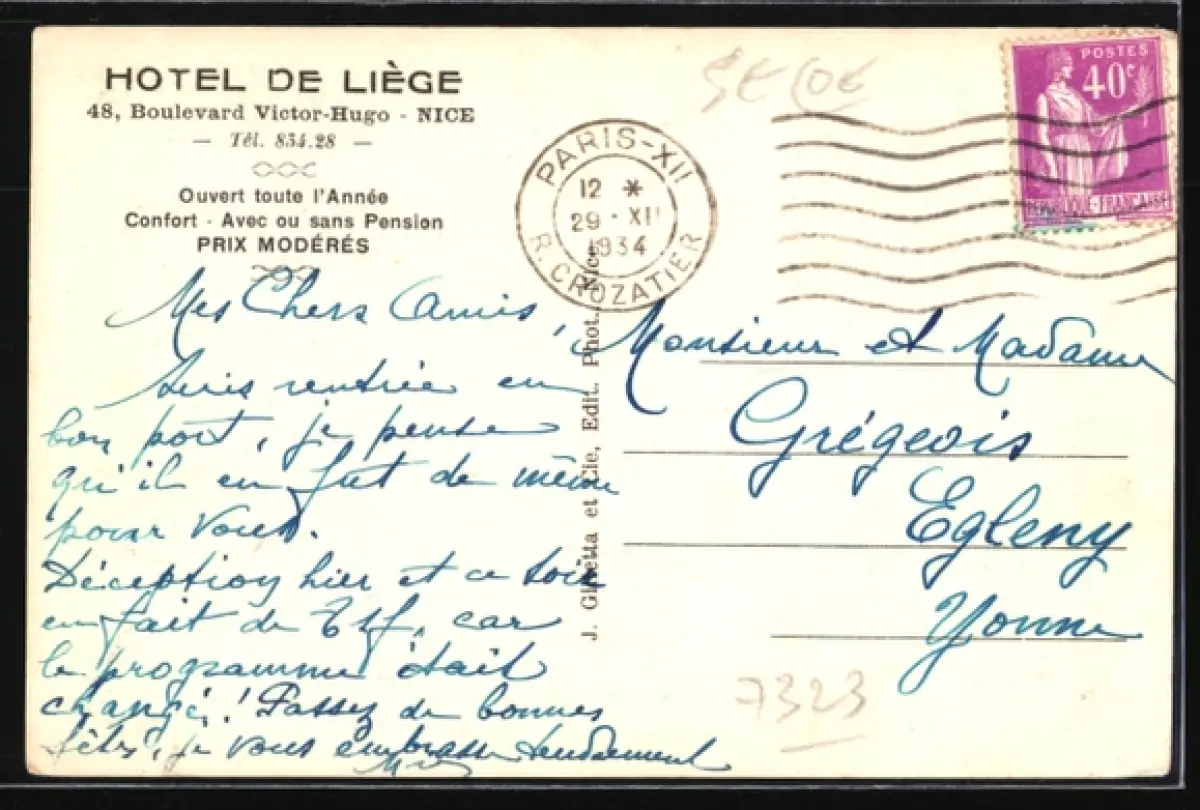 HOTEL DE LIÈGE
48, Boulevard Victor-Hugo - NICE
— Tél. 834.28 —
Ouvert toute l'Année
Confort - Avec ou sans Pension
PRIX MODÉRÉS
PARIS-XII
12 *
29 - XII
1934
R. CROZATIER
POSTES
40c
REPUBLIQUE-FRANÇAISE
J. Giletta et Cie, Edit. Phot. Nice
Mes Chers Amis,
Suis rentrée en
bon port, je pense
qu'il en fut de même
pour vous.
Déception hier et ce soir
en fait de TSF, car
le programme était
changé! Passez de bonnes
fêtes, je vous embrasse tendrement
Monsieur et Madame
Grégeois
Egleny
Yonne
7323